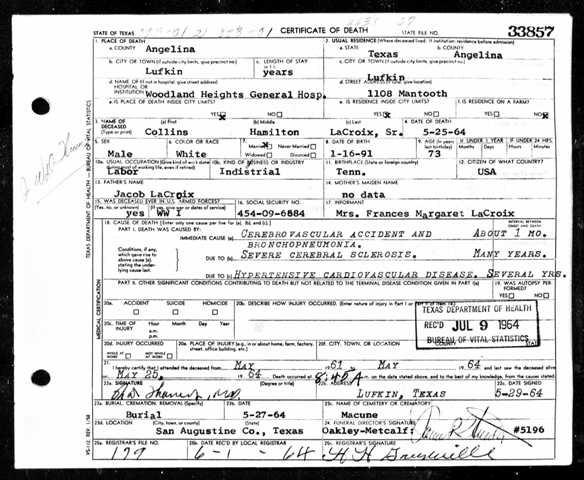 STATE OF TEXAS CERTIFICATE OF DEATH STATE FILE NO. 33857
1. PLACE OF DEATH
a. COUNTY Angelina
2. USUAL RESIDENCE (Where deceased lived. If institution: residence before admission)
a. STATE Texas
b. COUNTY Angelina
b. CITY OR TOWN (If outside city limits, give precinct no.) Lufkin
c. LENGTH OF STAY years
c. CITY OR TOWN (If outside city limits, give precinct no.) Lufkin
d. NAME OF (If not in hospital, give street address) HOSPITAL OR INSTITUTION Woodland Heights General Hosp.
d. STREET ADDRESS 1108 Mantooth
e. IS PLACE OF DEATH INSIDE CITY LIMITS? YES NO
e. IS RESIDENCE INSIDE CITY LIMITS? YES NO
f. IS RESIDENCE ON A FARM? YES NO
3. NAME OF DECEASED (Type or print)
(a) First Collins
(b) Middle Hamilton
(c) Last LaCroix, Sr.
4. DATE OF DEATH 5-25-64
5. SEX Male
6. COLOR OR RACE White
7. Married Never Married Widowed Divorced
8. DATE OF BIRTH 1-16-91
9. AGE 73
IF UNDER 1 YEAR
IF UNDER 24 HRS.
10a. USUAL OCCUPATION Labor
10b. KIND OF BUSINESS OR INDUSTRY Indistrial
11. BIRTHPLACE (State or foreign country) Tenn.
12. CITIZEN OF WHAT COUNTRY? USA
13. FATHER'S NAME Jacob LaCroix
14. MOTHER'S MAIDEN NAME no data
15. WAS DECEASED EVER IN U.S. ARMED FORCES? yes WW I
16. SOCIAL SECURITY NO. 454-09-6884
17. INFORMANT Mrs. Frances Margaret LaCroix
18. CAUSE OF DEATH
PART I. DEATH WAS CAUSED BY:
INTERVAL BETWEEN ONSET AND DEATH
IMMEDIATE CAUSE (a) CEREBROVASCULAR ACCIDENT AND ABOUT 1 MO.
BRONCHOPNEUMONIA.
Conditions, if any, which gave rise to above cause (a), stating the underlying cause last.
DUE TO (b) SEVERE CEREBRAL SCLEROSIS. MANY YEARS.
DUE TO (c) HYPERTENSIVE CARDIOVASCULAR DISEASE. SEVERAL YRS.
PART II. OTHER SIGNIFICANT CONDITIONS CONTRIBUTING TO DEATH BUT NOT RELATED TO THE TERMINAL DISEASE CONDITION GIVEN IN PART I
19. WAS AUTOPSY PERFORMED? YES NO
20a. ACCIDENT SUICIDE HOMICIDE
20b. DESCRIBE HOW INJURY OCCURRED.
20c. TIME OF INJURY Hour Month Day Year
a.m.
p.m.
20d. INJURY OCCURRED WHILE AT WORK NOT WHILE AT WORK
20e. PLACE OF INJURY (e.g., in or about home, farm, factory, street, office building, etc.)
20f. CITY, TOWN, OR LOCATION COUNTY
TEXAS DEPARTMENT OF HEALTH
REC'D JUL 9 1964
BUREAU OF VITAL STATISTICS
21. I hereby certify that I attended the deceased from MAY 61 MAY 64 and last saw the deceased
MAY 25, 64 Death occurred at
22a. SIGNATURE
22b. ADDRESS LUFKIN, TEXAS
22c. DATE SIGNED 5-29-64
23a. BURIAL, CREMATION, REMOVAL (Specify) Burial
23b. DATE 5-27-64
23c. NAME OF CEMETERY OR CREMATORY Macune
23d. LOCATION San Augustine Co., Texas
24. FUNERAL DIRECTOR'S SIGNATURE Oakley-Metcalf #5196
25a. REGISTRAR'S FILE NO. 179
25b. DATE REC'D BY LOCAL REGISTRAR 6-1-64
25c. REGISTRAR'S SIGNATURE
TEXAS DEPARTMENT OF HEALTH — BUREAU OF VITAL STATISTICS
MEDICAL CERTIFICATION